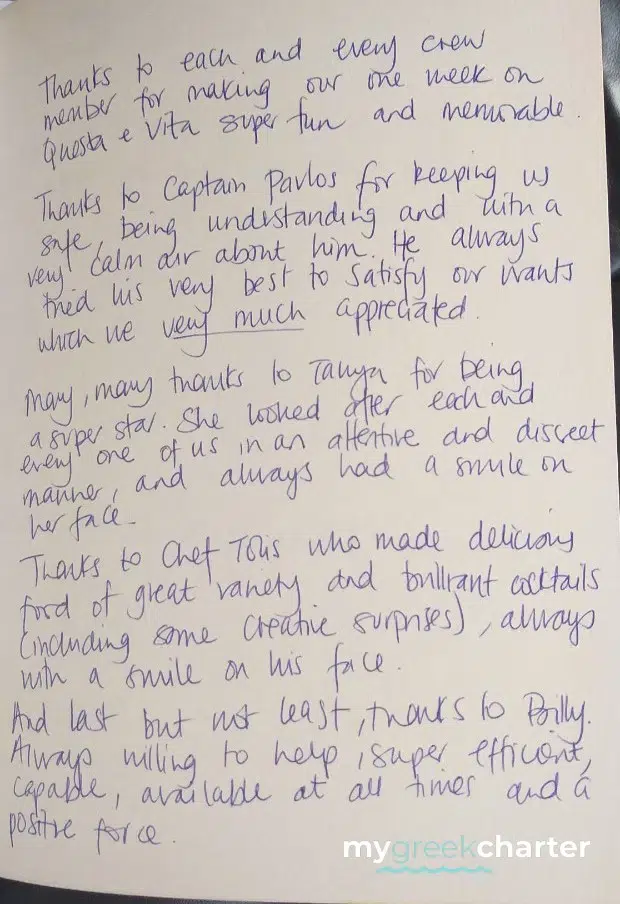 Thanks to each and every crew
member for making our one week on
Questa e Vita super fun and memorable.
Thanks to Captain Pavlos for keeping us
safe, being understanding and with a
very calm air about him. He always
tried his very best to satisfy our wants
which we very much appreciated.
Many, many thanks to Tanya for being
a super star. She looked after each and
every one of us in an attentive and discreet
manner, and always had a smile on
her face.
Thanks to Chef Tolis who made delicious
food of great variety and brilliant cocktails
(including some creative surprises), always
with a smile on his face.
And last but not least, thanks to Billy.
Always willing to help, super efficient,
capable, available at all times and a
positive force.
mygreekcharter